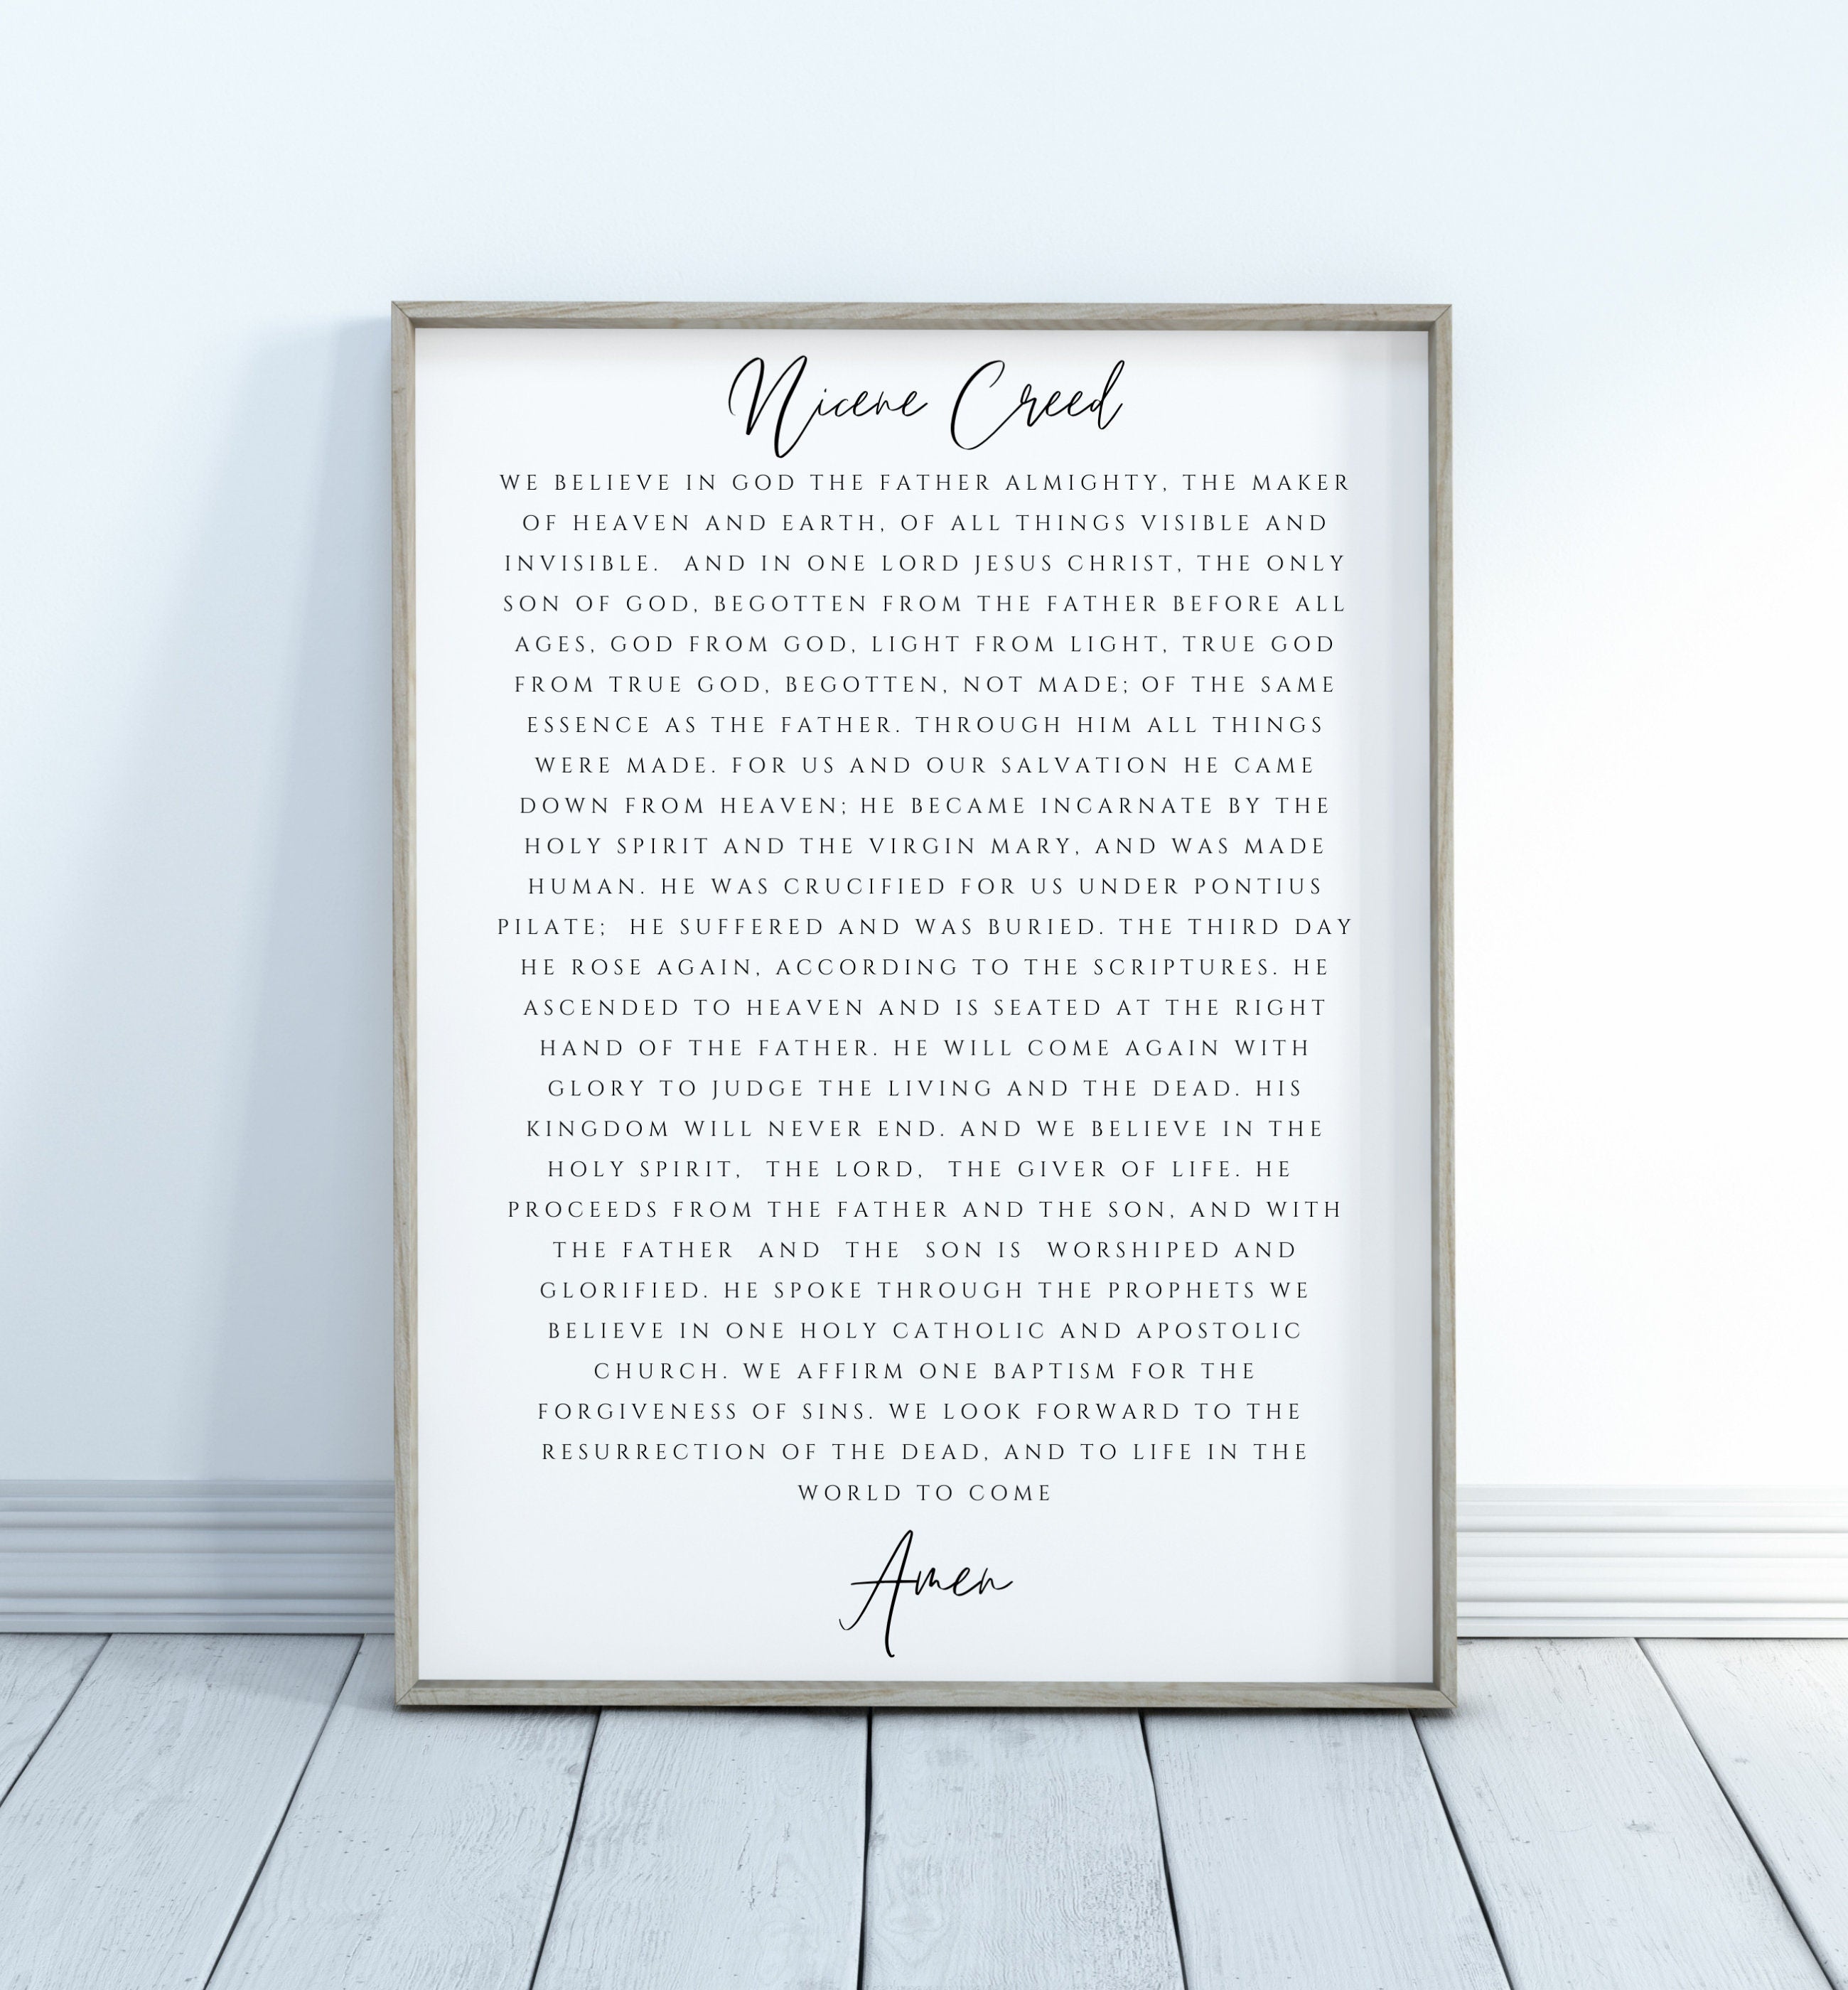 Nicene Creed
WE BELIEVE IN GOD THE FATHER ALMIGHTY, THE MAKER
OF HEAVEN AND EARTH, OF ALL THINGS VISIBLE AND
INVISIBLE. AND IN ONE LORD JESUS CHRIST, THE ONLY
SON OF GOD, BEGOTTEN FROM THE FATHER BEFORE ALL
AGES, GOD FROM GOD, LIGHT FROM LIGHT, TRUE GOD
FROM TRUE GOD, BEGOTTEN, NOT MADE; OF THE SAME
ESSENCE AS THE FATHER. THROUGH HIM ALL THINGS
WERE MADE. FOR US AND OUR SALVATION HE CAME
DOWN FROM HEAVEN; HE BECAME INCARNATE BY THE
HOLY SPIRIT AND THE VIRGIN MARY, AND WAS MADE
HUMAN. HE WAS CRUCIFIED FOR US UNDER PONTIUS
PILATE; HE SUFFERED AND WAS BURIED. THE THIRD DAY
HE ROSE AGAIN, ACCORDING TO THE SCRIPTURES. HE
ASCENDED TO HEAVEN AND IS SEATED AT THE RIGHT
HAND OF THE FATHER. HE WILL COME AGAIN WITH
GLORY TO JUDGE THE LIVING AND THE DEAD. HIS
KINGDOM WILL NEVER END. AND WE BELIEVE IN THE
HOLY SPIRIT, THE LORD, THE GIVER OF LIFE. HE
PROCEEDS FROM THE FATHER AND THE SON, AND WITH
THE FATHER AND THE SON IS WORSHIPED AND
GLORIFIED. HE SPOKE THROUGH THE PROPHETS WE
BELIEVE IN ONE HOLY CATHOLIC AND APOSTOLIC
CHURCH. WE AFFIRM ONE BAPTISM FOR THE
FORGIVENESS OF SINS. WE LOOK FORWARD TO THE
RESURRECTION OF THE DEAD, AND TO LIFE IN THE
WORLD TO COME
Amen